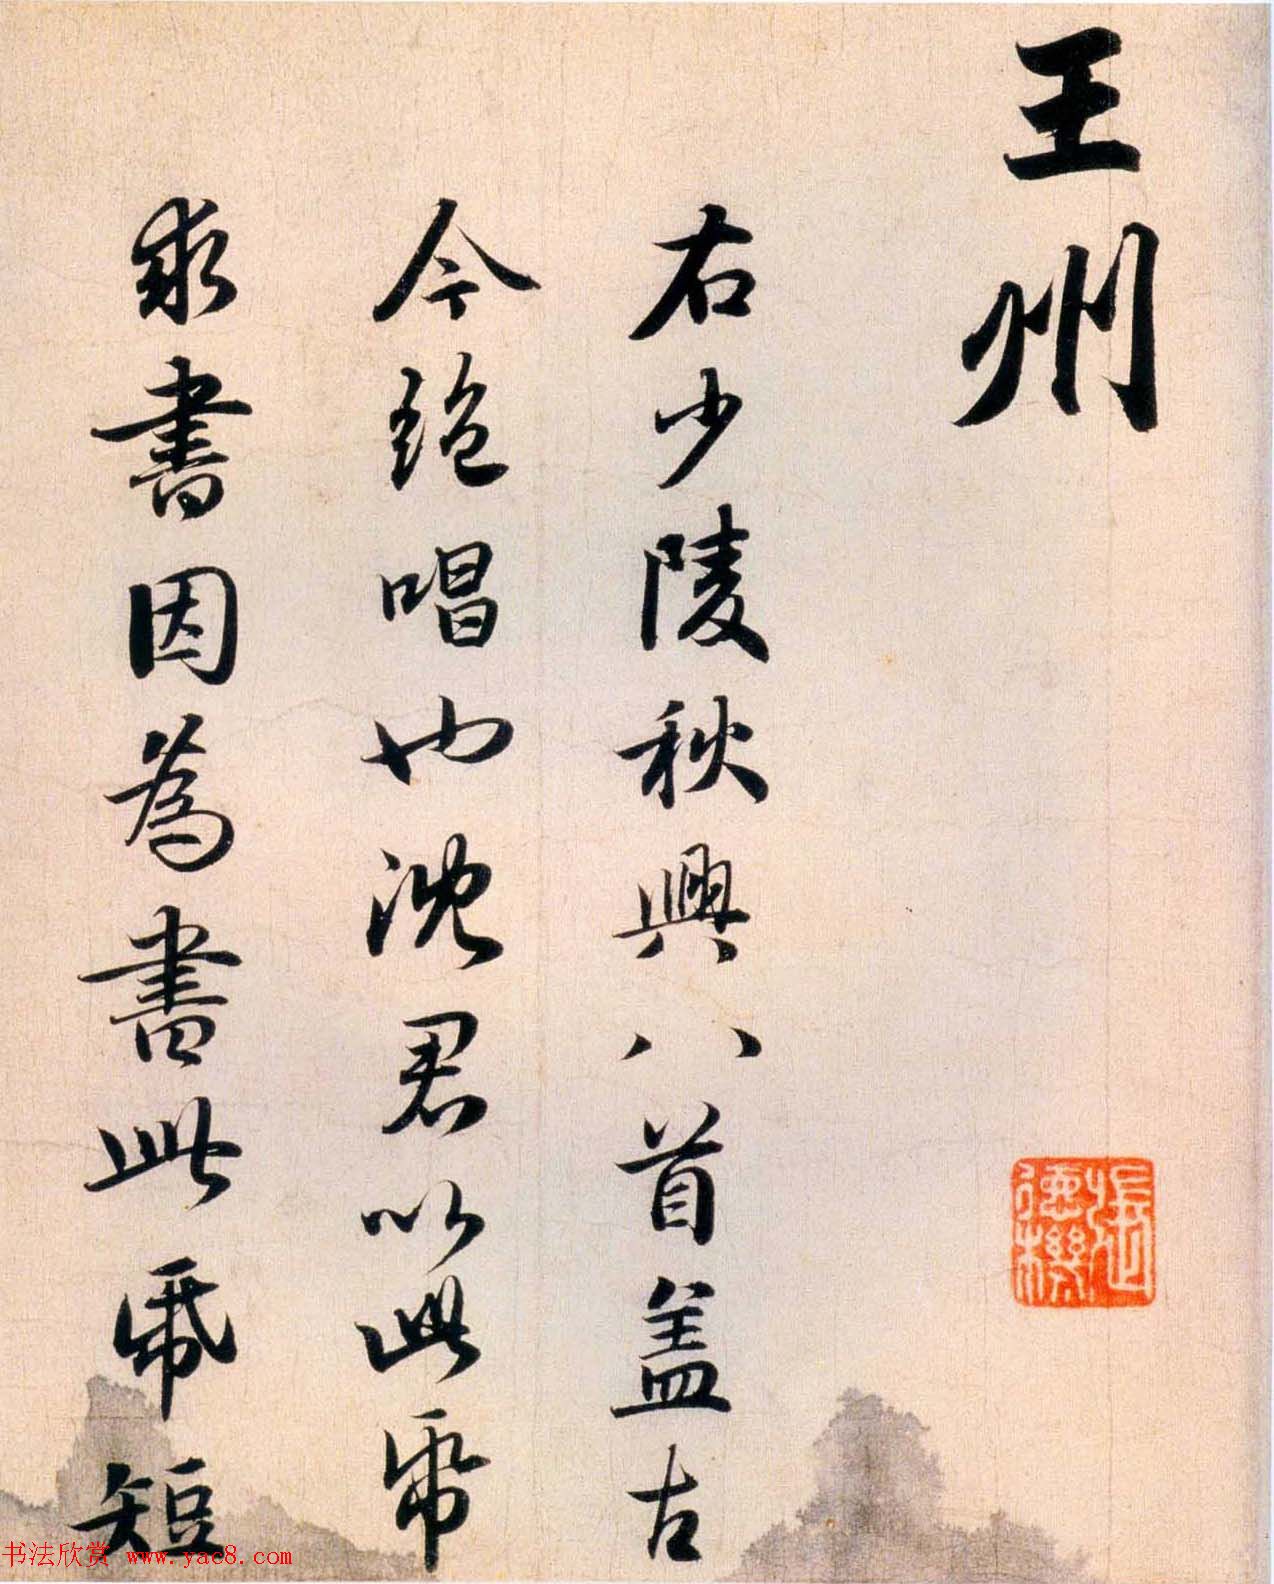 王州
右少陵秋興八首盖古
今絶唱也沈君以此帋
求書因為書此帋短
張氏
德機
书法欣赏 www.yac8.com